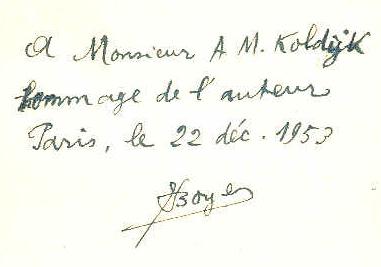 A Monsieur A M. Koldijk
hommage de l'auteur
Paris, le 22 déc. 1953
Boyer